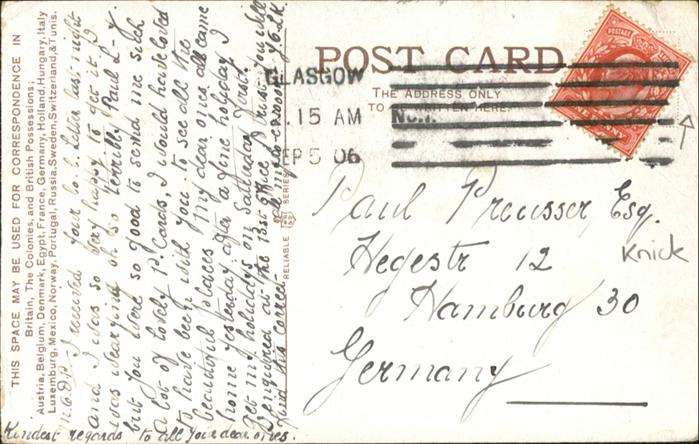 THIS SPACE MAY BE USED FOR CORRESPONDENCE IN
Britain, The Colonies, and British Possessions,
Austria, Belgium, Denmark, Egypt, France, Germany, Holland, Hungary, Italy
Luxemburg, Mexico, Norway, Portugal, Russia, Sweden, Switzerland, & Tunis.
I received your letter last night
and I was so very happy to get it, I
was wearying oh so terribly Paul L-y.
but you were so good to send me such
a lot of lovely P. Cards, I would have loved
to have been with you to see all the
beautiful places. My dear ones all came
home yesterday after a fine holiday, I
get my holidays on Saturday first.
I enquired at the Post Office, & trust you will
find this correct.
Kindest regards to all your dear ones.
RELIABLE SERIES
POST CARD
THE ADDRESS ONLY
TO BE WRITTEN HERE
GLASGOW
.15 AM
SEP 5 06
No.1.
POSTAGE
Paul Preusser, Esq.
Hegestr 12
Hamburg 30
Germany
Knick